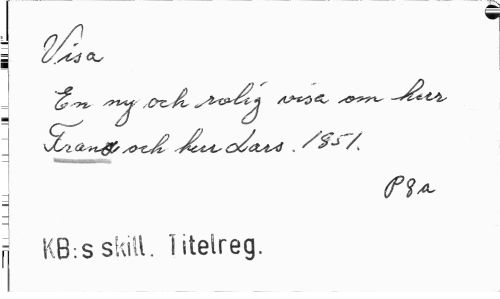 Visa
En ny och rolig visa om herr
Frans och herr Lars. 1851.
P 8 a
KB:s skill. Titelreg.